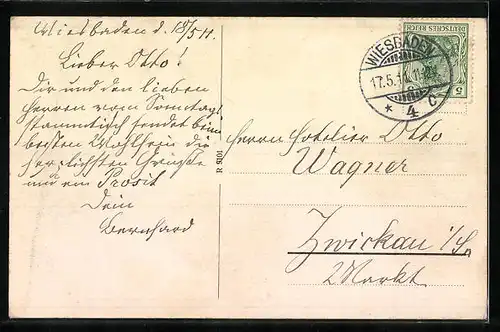 Wiesbaden d. 18/5 11.
Lieber Otto!
Dir und den lieben
Herren vom Sonntag
stammtisch sendet beim
besten Wohlsein die
herzlichsten Grüße
und ein Prosit
Dein
Bernhard
R 9101
DEUTSCHES REICH
5
WIESBADEN
17.5.11. 11-12V.
* 4 c
Herrn Hotelier Otto
Wagner
Zwickau i/S.
2 Markt